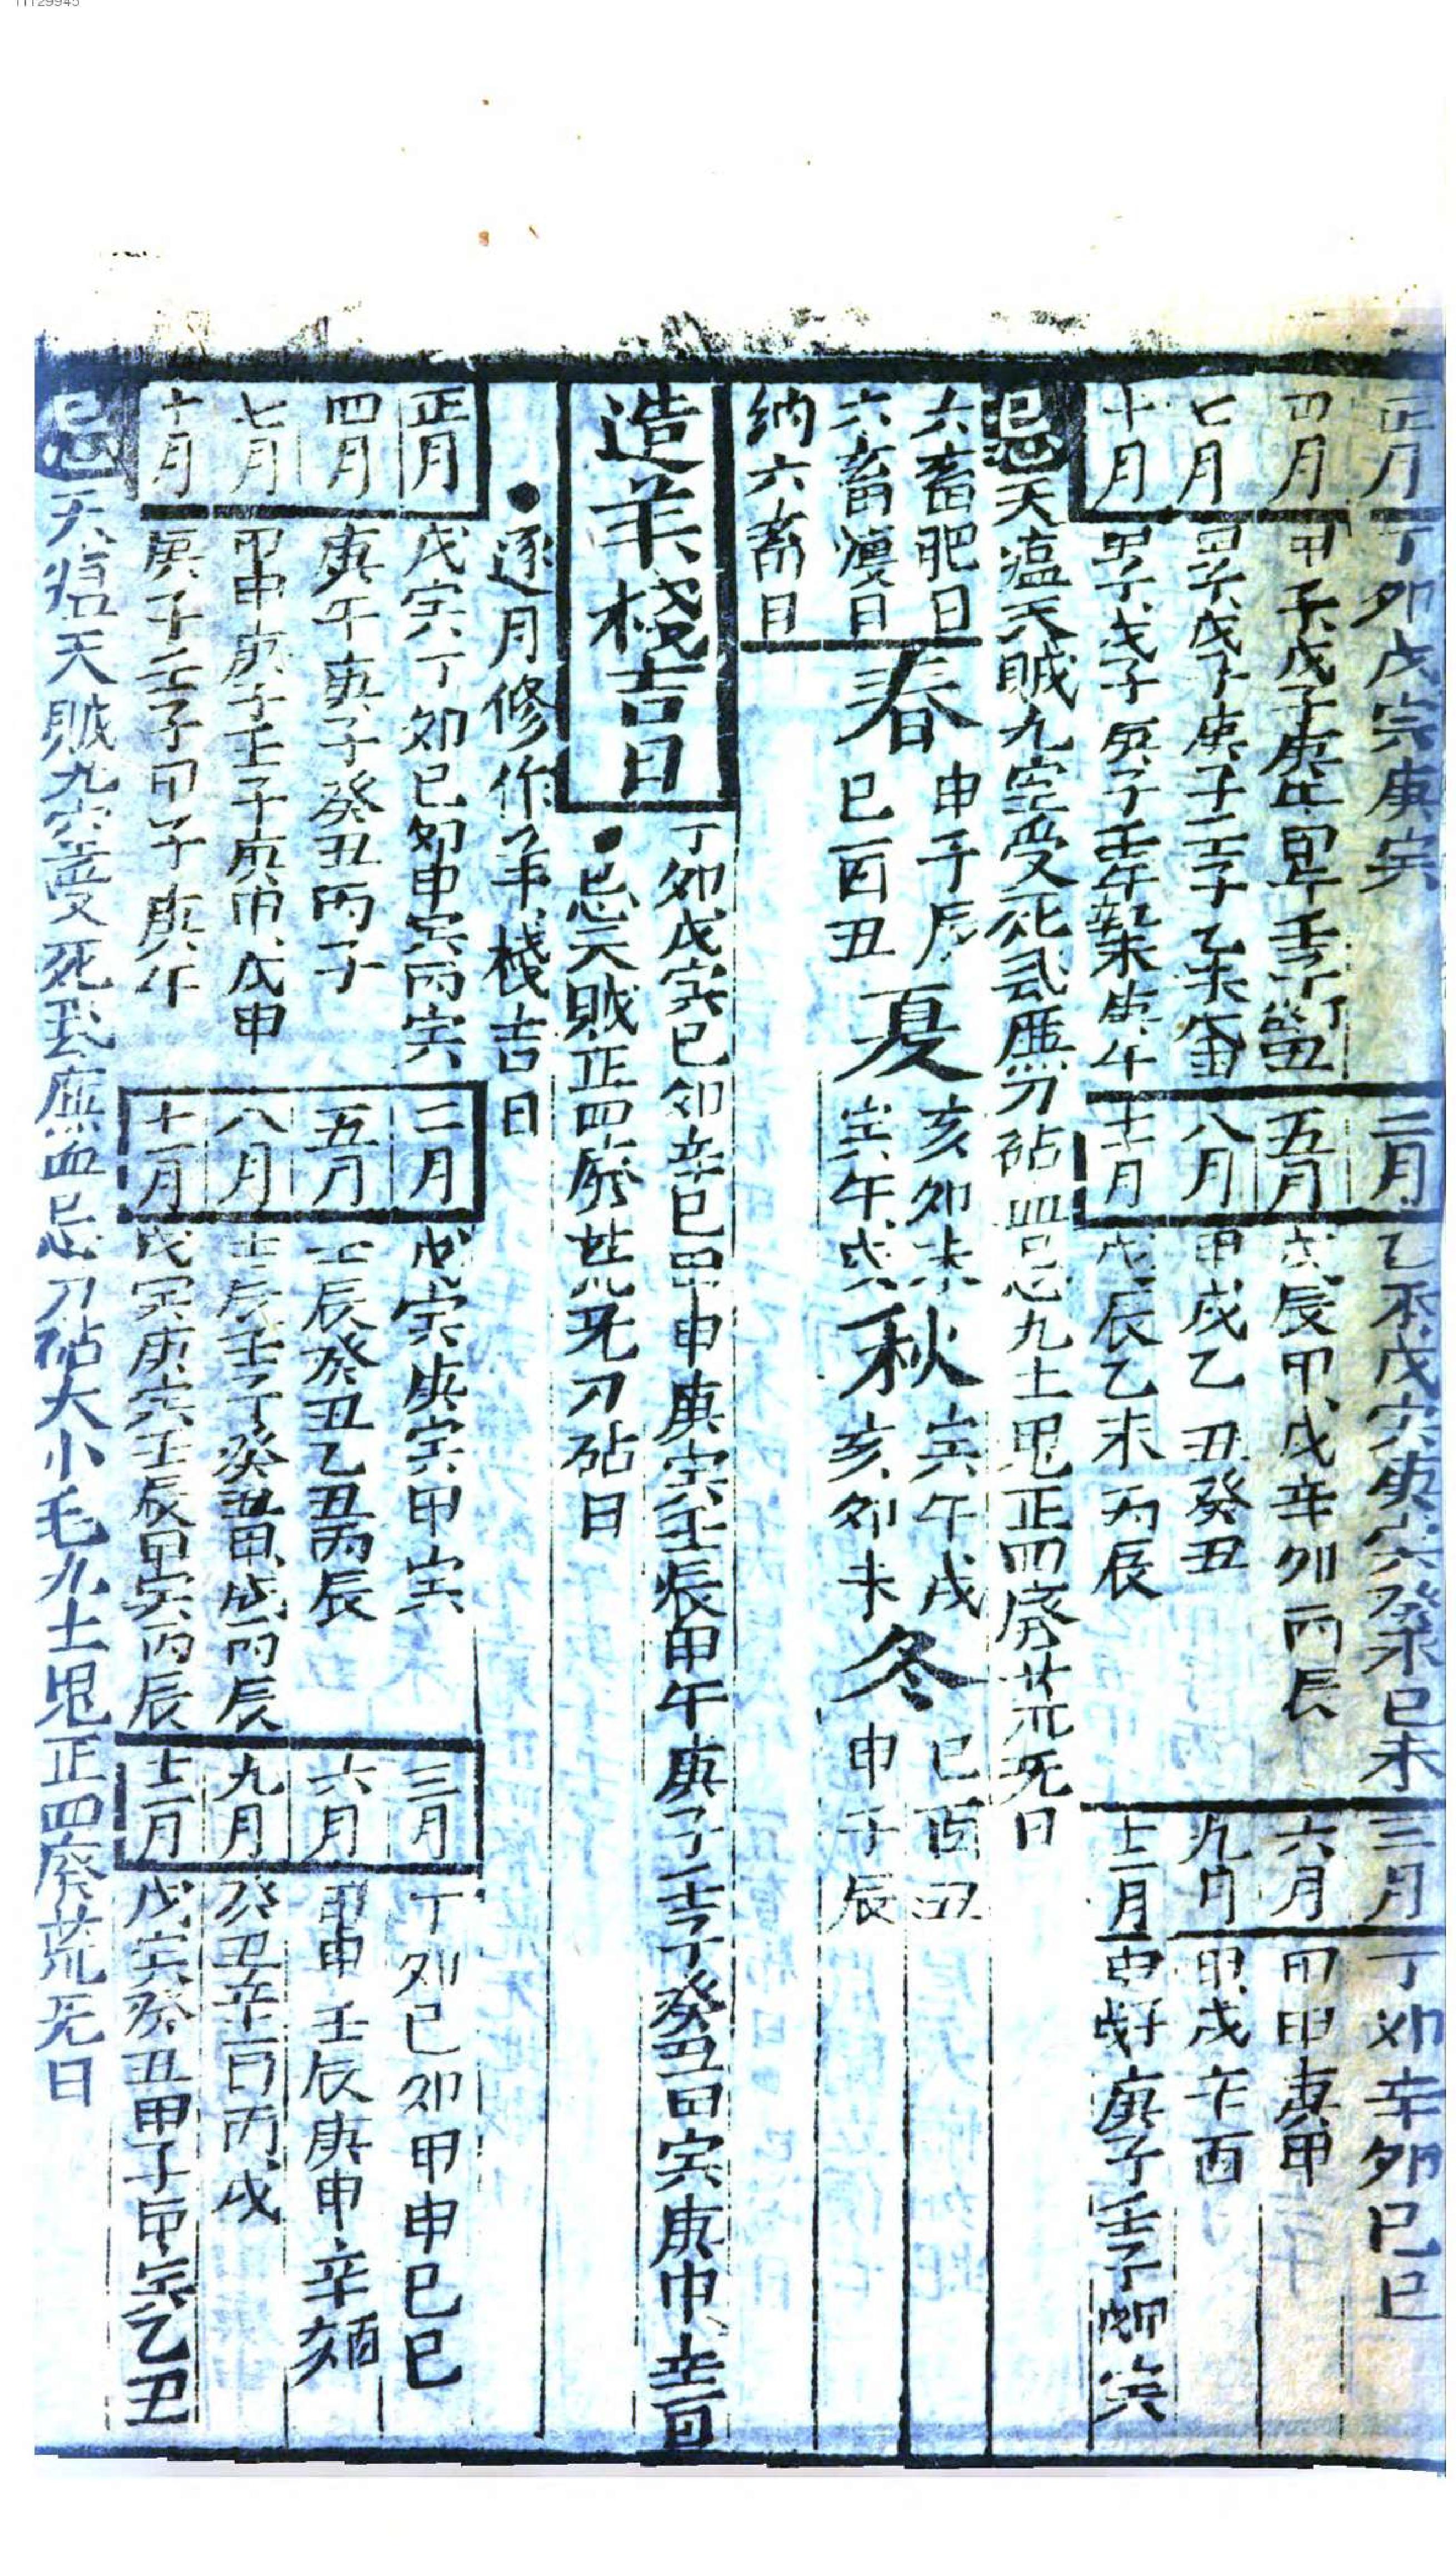 正月 丁卯戊寅庚寅 二月 乙未戊寅庚寅癸未己未 三月 丁卯辛卯己巳
四月 甲子戊子庚子 五月 戊辰甲戌辛卯丙辰 六月 甲申庚申
七月 甲子戊子庚子壬子乙未 八月 甲戌乙丑癸丑 九月 甲戌辛酉
十月 甲子戊子庚子壬子 庚午 十一月 戊辰乙未丙辰 十二月 庚子壬子 寅
忌天瘟天賊九空受死飛廉刀砧四忌九土鬼正四廢荒死日
六畜肥日 春 申子辰 夏 亥卯未 秋 寅午戌 冬 巳酉丑
六畜瘦日 巳酉丑 寅午戌 亥卯未 申子辰
納六畜日
造羊棧吉日 丁卯戊寅己卯辛巳甲申庚寅壬辰甲午庚子壬子癸丑甲寅庚申辛酉
●忌天賊正四廢荒死刀砧日
●逐月修作羊棧吉日
正月 戊寅丁卯己卯甲寅丙寅 二月 戊寅庚寅甲寅 三月 丁卯己卯甲申己巳
四月 庚午庚子癸丑丙子 五月 壬辰癸丑乙丑丙辰 六月 甲申壬辰庚申辛
七月 甲申庚子壬子庚申戊申 八月 壬辰壬子癸丑甲戌丙辰 九月 癸丑辛酉丙戌
十月 庚子壬子甲子庚午 十一月 戊寅庚寅壬辰甲寅丙辰 十二月 戊寅癸丑甲子甲寅乙丑
忌天瘟天賊九空受死飛廉血忌刀砧大小耗九土鬼正四廢荒死日